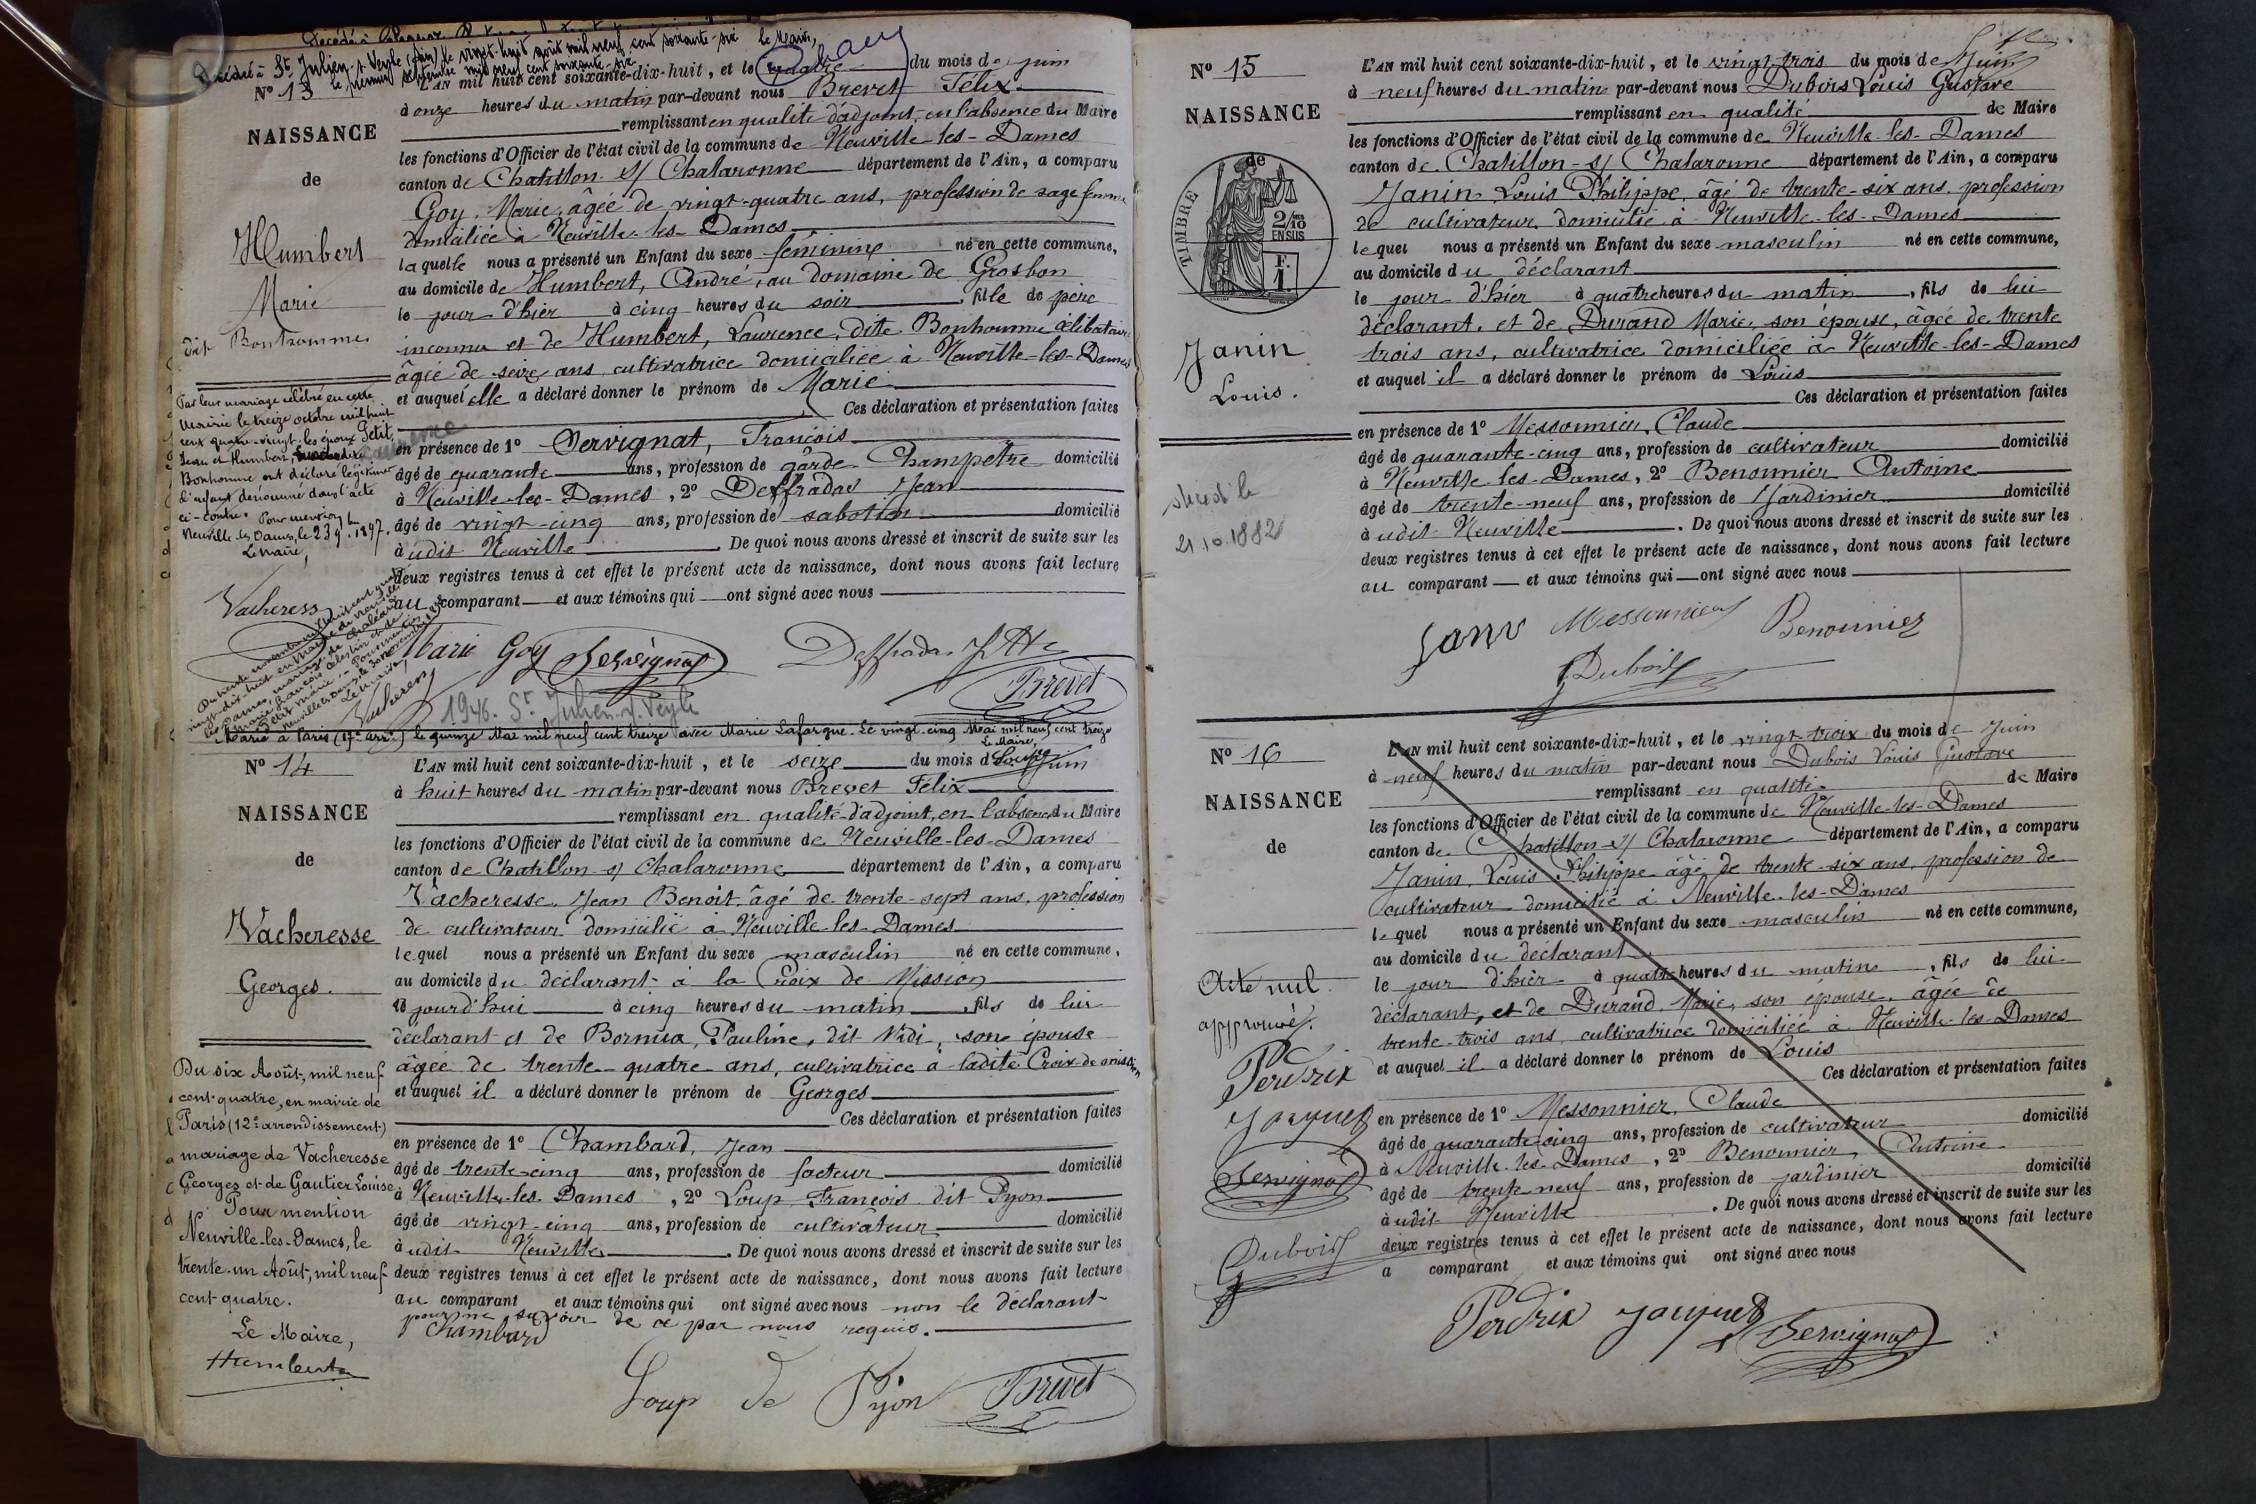 Décédé à St Julien-s-Veyle (Ain) le vingt-huit août mil neuf cent soixante-six le Maire,
le premier septembre mil neuf cent soixante-six
N° 13
NAISSANCE
de
Humbert
Marie
dit Bonhomme
L'AN mil huit cent soixante-dix-huit, et le quatre du mois de juin
à onze heures du matin par-devant nous Brevet Félix
remplissant en qualité d'adjoint, en l'absence du Maire
les fonctions d'Officier de l'état civil de la commune de Neuville-les-Dames
canton de Chatillon s/ Chalaronne département de l'Ain, a comparu
Goy, Marie, âgée de vingt-quatre ans, profession de sage femme
domiciliée à Neuville-les-Dames
laquelle nous a présenté un Enfant du sexe féminin né en cette commune,
au domicile de Humbert, André, au domaine de Grosbon
le jour d'hier à cinq heures du soir, fille de père
inconnu et de Humbert, Laurence, dite Bonhomme célibataire
âgée de seize ans cultivatrice domiciliée à Neuville-les-Dames
et auquel elle a déclaré donner le prénom de Marie
Ces déclaration et présentation faites
en présence de 1° Servignat, François
âgé de quarante ans, profession de garde Champêtre domicilié
à Neuville-les-Dames, 2° Deffradas Jean
âgé de vingt-cinq ans, profession de sabotier domicilié
à udit Neuville. De quoi nous avons dressé et inscrit de suite sur les
deux registres tenus à cet effet le présent acte de naissance, dont nous avons fait lecture
au comparant et aux témoins qui ont signé avec nous
Marie Goy Servignat Deffradas
Brevet
Par leur mariage célébré en cette
Mairie le treize octobre mil huit
cent quatre-vingt, les époux Petit,
Jean et Humbert, dite
Bonhomme ont déclaré légitimer
l'enfant dénommé dans l'acte
ci-contre. Pour mention
Neuville les Dames, le 23 9. 1897.
Le Maire,
Vacheresse
1946. St Julien-s-Veyle
Marié à Paris (17e arrt) le quinze Mai mil neuf cent treize avec Marie Lafargue. Le vingt-cinq Mai mil neuf cent treize
Le Maire,
N° 14
NAISSANCE
de
Vacheresse
Georges.
L'AN mil huit cent soixante-dix-huit, et le seize du mois de Juin
à huit heures du matin par-devant nous Brevet Félix
remplissant en qualité d'adjoint, en l'absence du Maire
les fonctions d'Officier de l'état civil de la commune de Neuville-les-Dames
canton de Chatillon s/ Chalaronne département de l'Ain, a comparu
Vacheresse, Jean Benoit, âgé de trente-sept ans, profession
de cultivateur domicilié à Neuville-les-Dames
lequel nous a présenté un Enfant du sexe masculin né en cette commune,
au domicile du déclarant à la Croix de Mission
jourd'hui à cinq heures du matin, fils de lui
déclarant et de Bornua, Pauline, dit Nidi, son épouse
âgée de trente-quatre ans, cultivatrice à ladite Croix de mission
et auquel il a déclaré donner le prénom de Georges
Ces déclaration et présentation faites
en présence de 1° Chambard, Jean
âgé de trente-cinq ans, profession de facteur domicilié
à Neuville-les-Dames, 2° Loup François dit Pyon
âgé de vingt-cinq ans, profession de cultivateur domicilié
à udit Neuville. De quoi nous avons dressé et inscrit de suite sur les
deux registres tenus à cet effet le présent acte de naissance, dont nous avons fait lecture
au comparant et aux témoins qui ont signé avec nous non le déclarant
pour ne savoir de ce par nous requis.
Chambard
Loup de Pyon Brevet
Du six Août, mil neuf
cent quatre, en mairie de
Paris (12e arrondissement)
mariage de Vacheresse
Georges et de Gautier Louise
Pour mention
Neuville-les-Dames, le
trente-un Août, mil neuf
cent quatre.
Le Maire,
Humbert
N° 15
NAISSANCE
de
TIMBRE
2/10
EN SUS
F.
1
Janin
Louis.
décédé le
21.10.1882
L'AN mil huit cent soixante-dix-huit, et le vingt-trois du mois de Juin
à neuf heures du matin par-devant nous Dubois Louis Gustave
remplissant en qualité de Maire
les fonctions d'Officier de l'état civil de la commune de Neuville-les-Dames
canton de Chatillon-s/ Chalaronne département de l'Ain, a comparu
Janin Louis Philippe, âgé de trente-six ans, profession
de cultivateur domicilié à Neuville-les-Dames
lequel nous a présenté un Enfant du sexe masculin né en cette commune,
au domicile du déclarant
le jour d'hier à quatre heures du matin, fils de lui
déclarant, et de Durand Marie, son épouse, âgée de trente
trois ans, cultivatrice domiciliée à Neuville-les-Dames
et auquel il a déclaré donner le prénom de Louis
Ces déclaration et présentation faites
en présence de 1° Messonnier, Claude
âgé de quarante-cinq ans, profession de cultivateur domicilié
à Neuville-les-Dames, 2° Benonnier Antoine
âgé de trente-neuf ans, profession de Jardinier domicilié
à udit Neuville. De quoi nous avons dressé et inscrit de suite sur les
deux registres tenus à cet effet le présent acte de naissance, dont nous avons fait lecture
au comparant et aux témoins qui ont signé avec nous
Messonnier Benonnier
Dubois
N° 16
NAISSANCE
de
Acte nul
approuvé.
Perdrix
Jacquet
Servignat
Dubois
L'AN mil huit cent soixante-dix-huit, et le vingt-trois du mois de Juin
à neuf heures du matin par-devant nous Dubois Louis Gustave
remplissant en qualité de Maire
les fonctions d'Officier de l'état civil de la commune de Neuville-les-Dames
canton de Chatillon-s/ Chalaronne département de l'Ain, a comparu
Janin, Louis Philippe âgé de trente-six ans, profession de
cultivateur domicilié à Neuville-les-Dames
lequel nous a présenté un Enfant du sexe masculin né en cette commune,
au domicile du déclarant
le jour d'hier à quatre heures du matin, fils de lui
déclarant, et de Durand, Marie, son épouse, âgée de
trente-trois ans, cultivatrice domiciliée à Neuville-les-Dames
et auquel il a déclaré donner le prénom de Louis
Ces déclaration et présentation faites
en présence de 1° Messonnier, Claude
âgé de quarante-cinq ans, profession de cultivateur domicilié
à Neuville-les-Dames, 2° Benonnier, Antoine
âgé de trente neuf ans, profession de jardinier domicilié
à udit Neuville. De quoi nous avons dressé et inscrit de suite sur les
deux registres tenus à cet effet le présent acte de naissance, dont nous avons fait lecture
a comparant et aux témoins qui ont signé avec nous
Perdrix Jacquet
Servignat